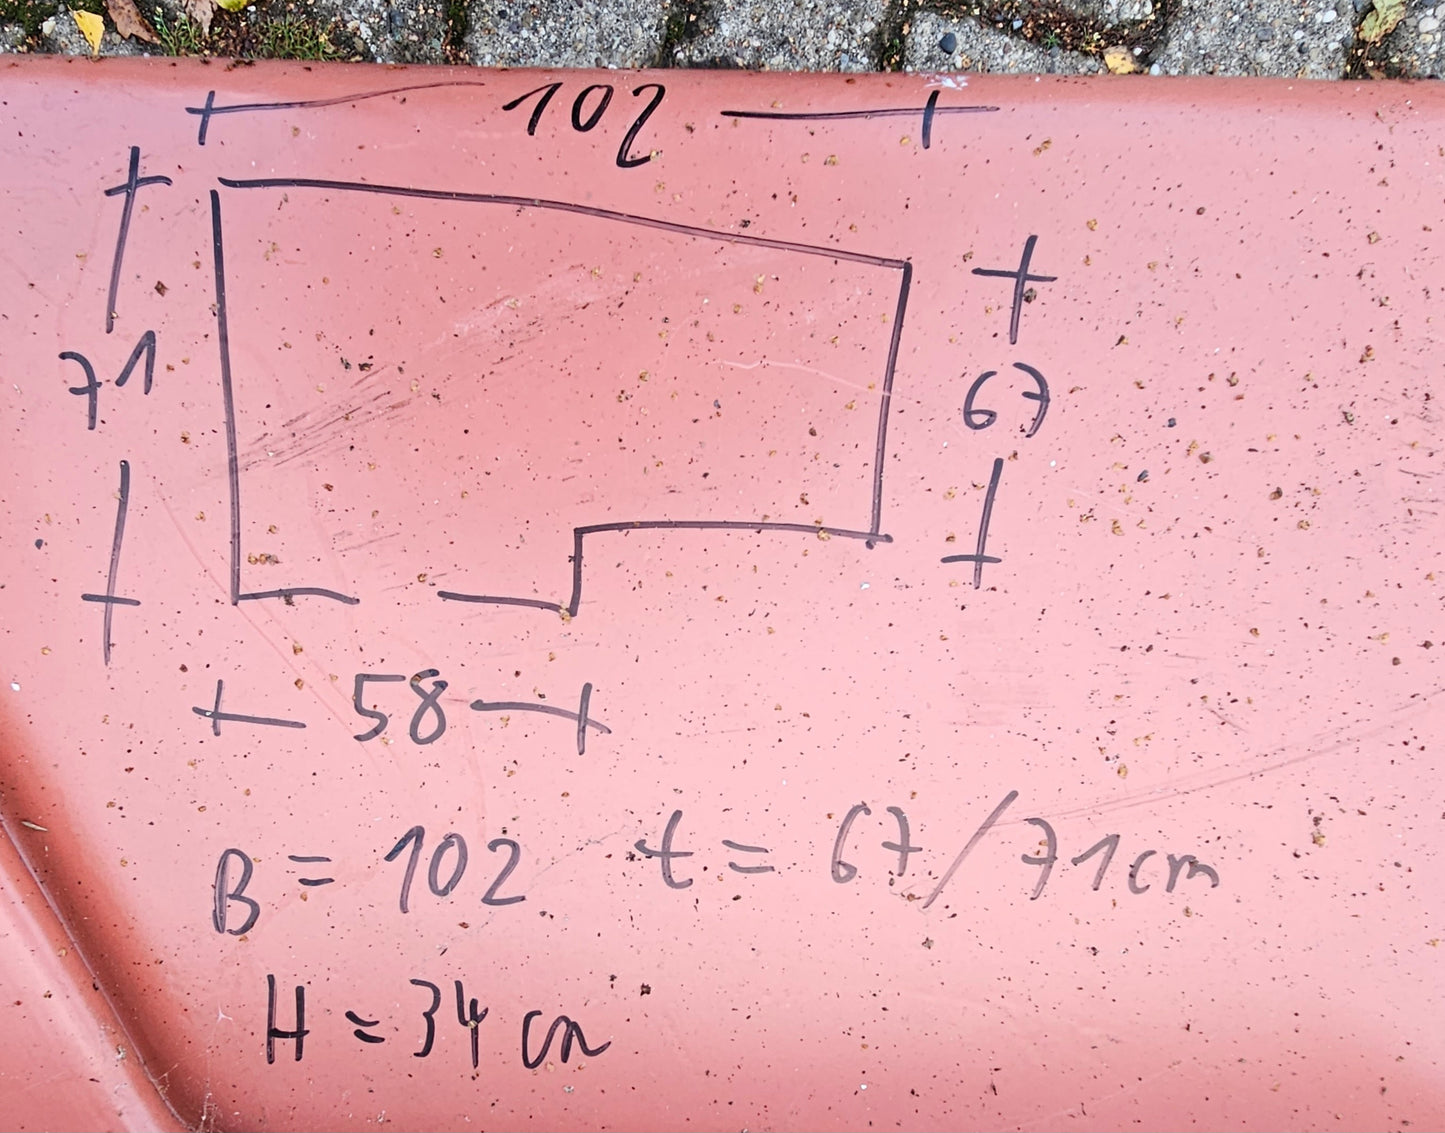 102
71
67
58
B = 102 t = 67/71cm
H = 34 cm